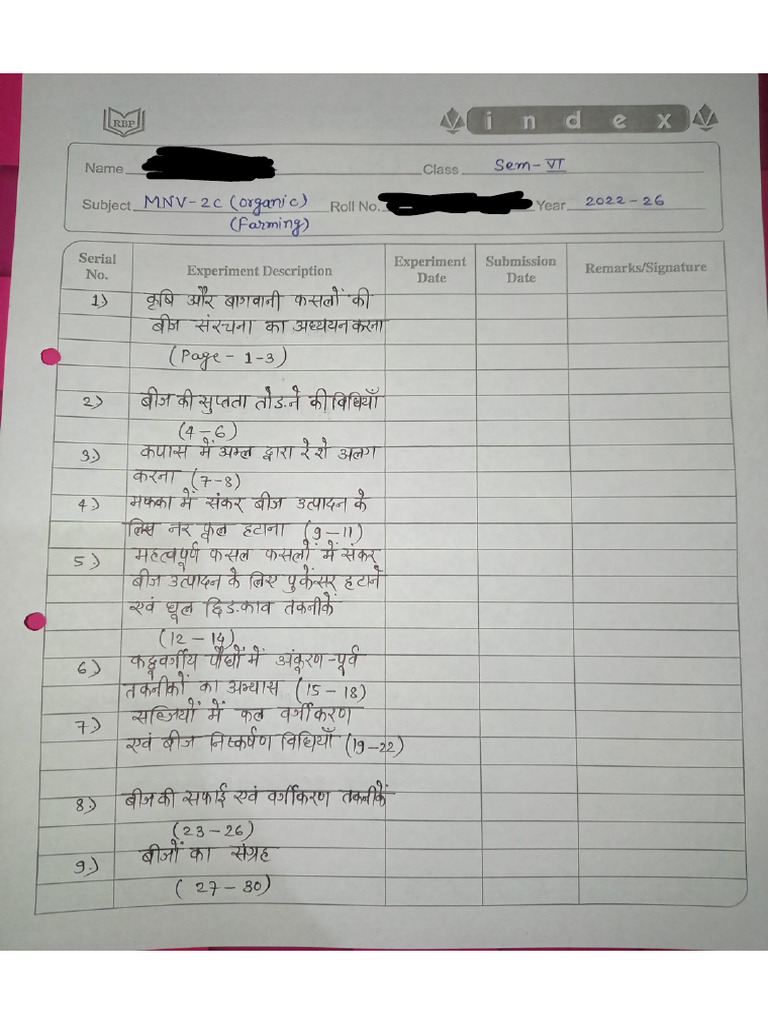 RBP
index
Name Class Sem-VI
Subject MNV-2C (organic) Roll No. Year 2022-26
(Farming)
Serial No. Experiment Description Experiment Date Submission Date Remarks/Signature
1) कृषि और बागवानी फसलों की
बीज संरचना का अध्ययन करना
(Page - 1-3)
2) बीज की सुप्तता तोड़ने की विधियाँ
(4-6)
3.) कपास में अम्ल द्वारा रेशे अलग
करना (7-8)
4.) मक्का में संकर बीज उत्पादन के
लिए नर फूल हटाना (9-11)
5.) महत्वपूर्ण फसल फसलों में संकर
बीज उत्पादन के लिए पुकेंसर हटाने
एवं धूल छिड़काव तकनीकें
(12-14)
6.) कद्दूवर्गीय पौधों में अंकूरण-पूर्व
तकनीकों का अभ्यास (15-18)
7.) सब्जियों में फल वर्गीकरण
एवं बीज निष्कर्षण विधियाँ (19-22)
8.) बीज की सफाई एवं वर्गीकरण तकनीकें
(23-26)
9.) बीजों का संग्रह
(27-30)